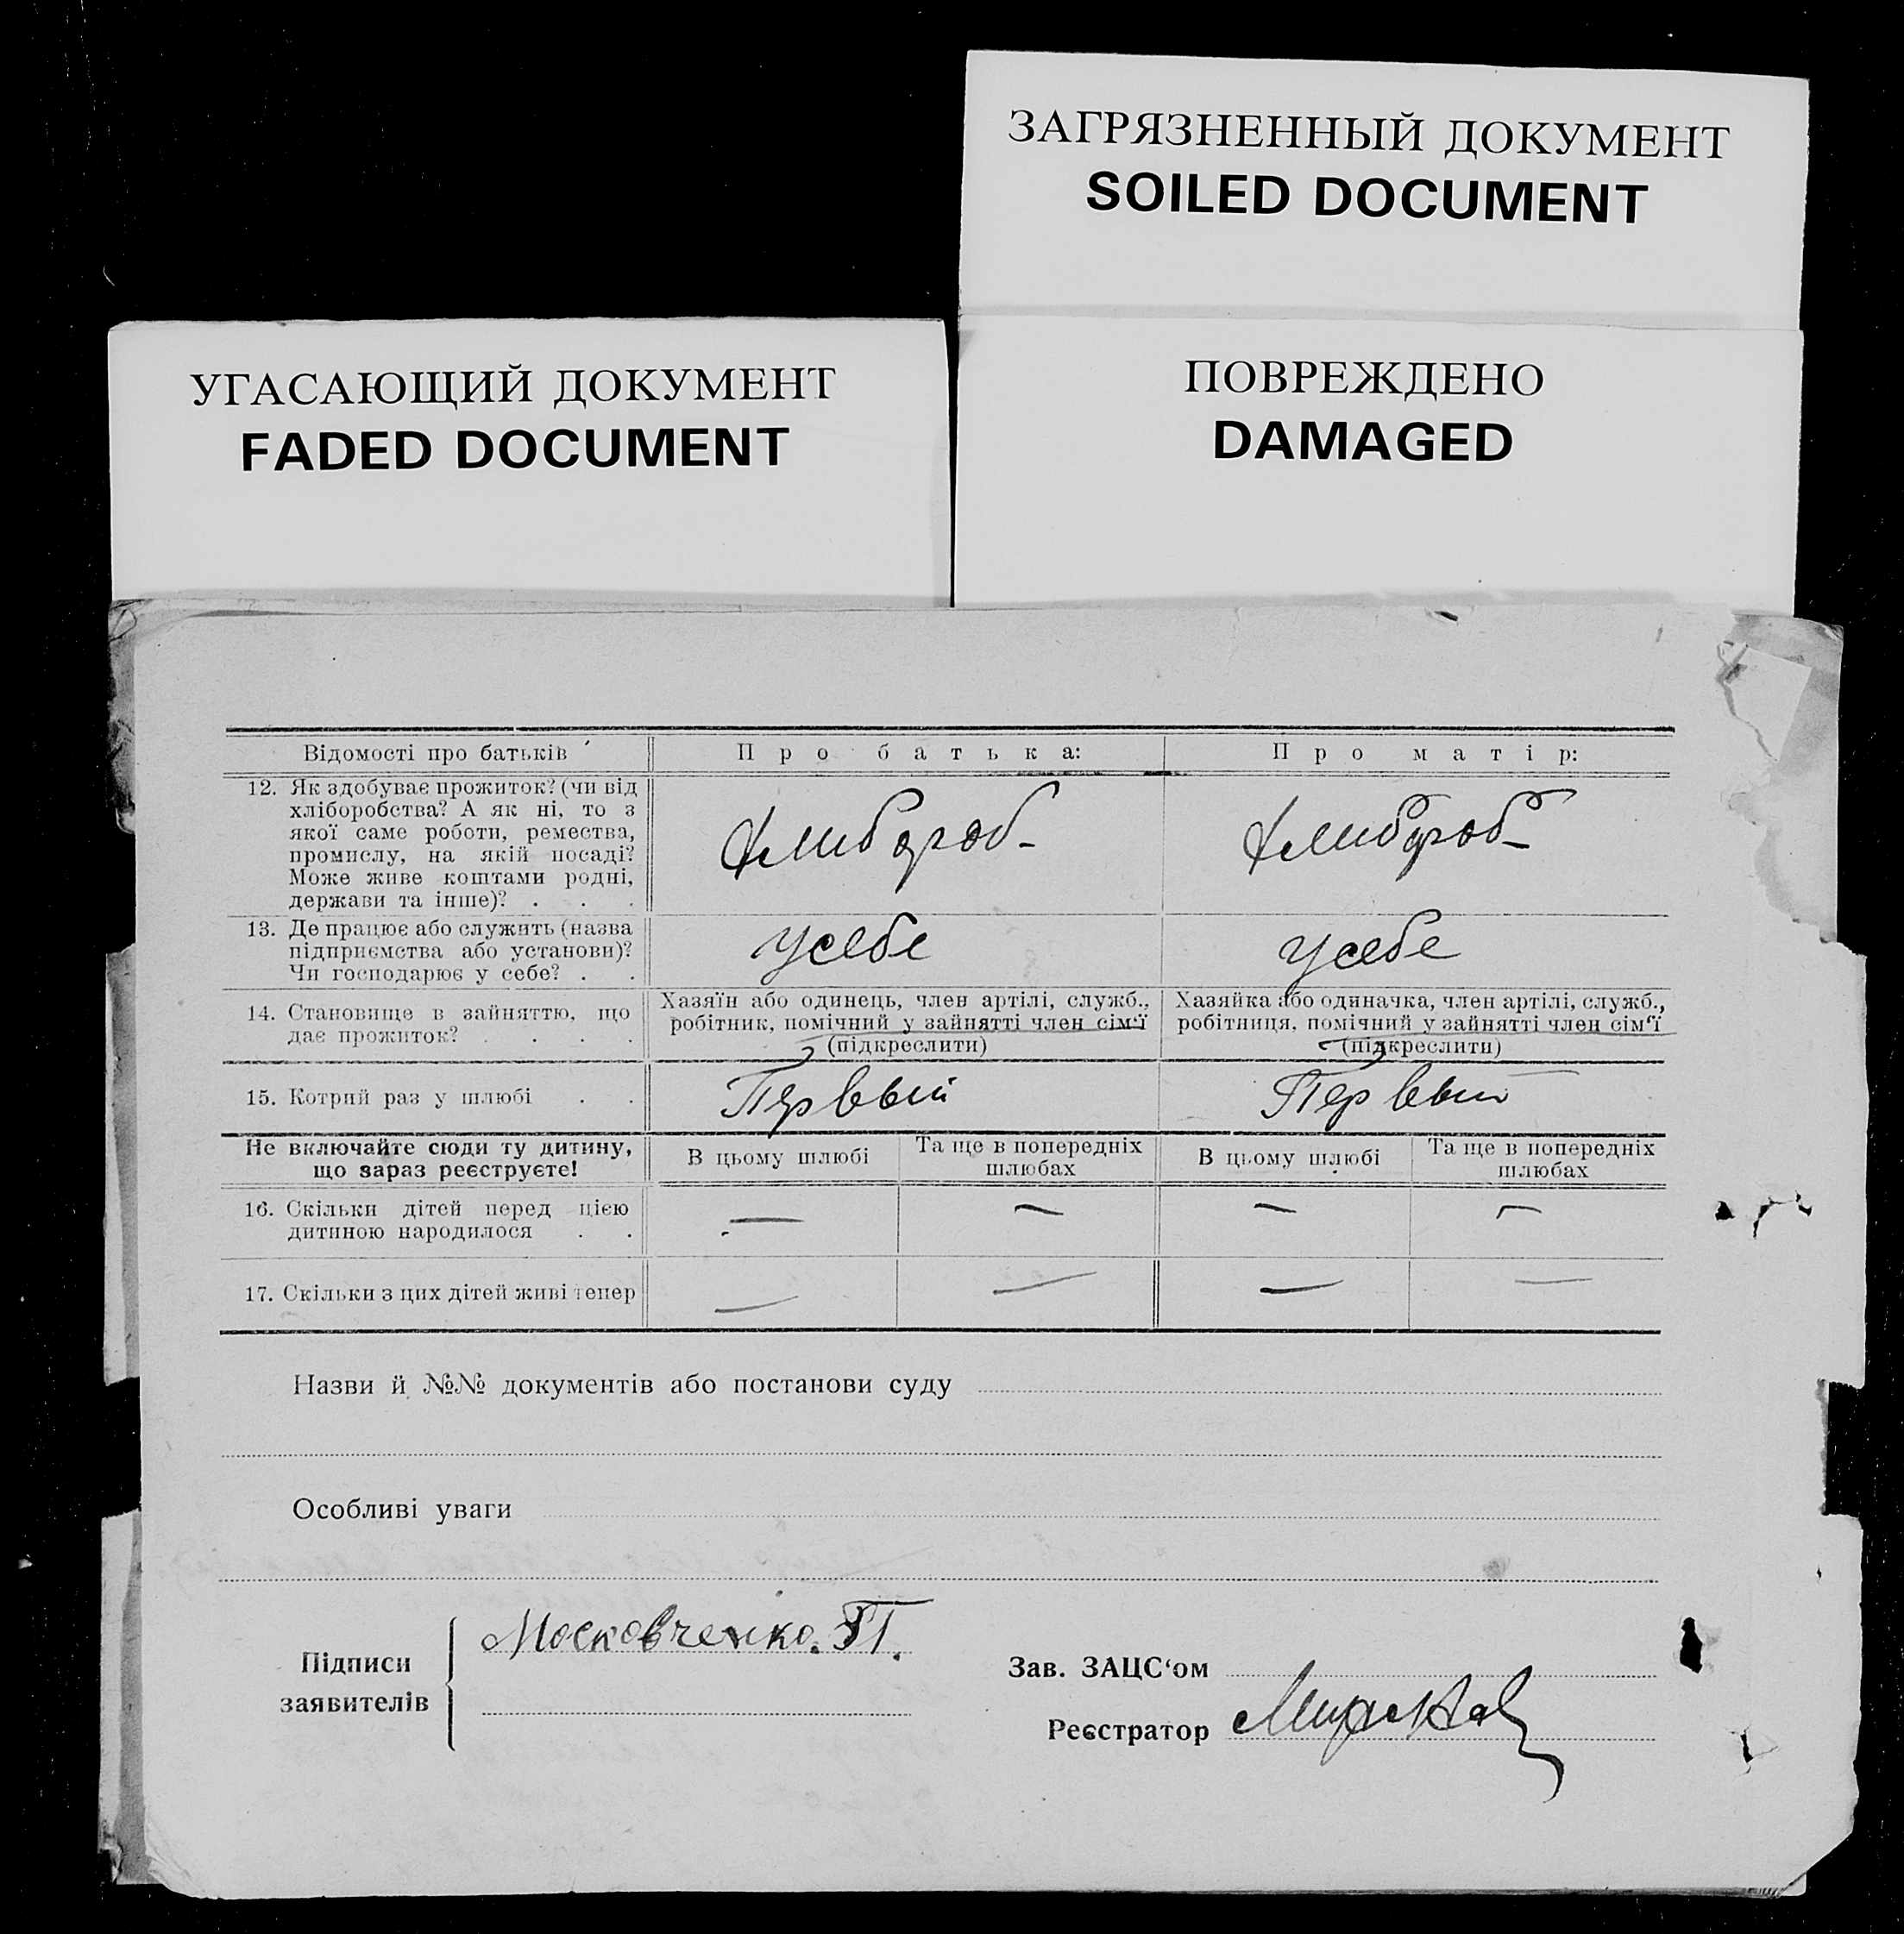 ЗАГРЯЗНЕННЫЙ ДОКУМЕНТ
SOILED DOCUMENT
УГАСАЮЩИЙ ДОКУМЕНТ
FADED DOCUMENT
ПОВРЕЖДЕНО
DAMAGED
Відомості про батьків
Про батька:
Про матір:
12. Як здобуває прожиток? (чи від
хліборобства? А як ні, то з
якої саме роботи, ремества,
промислу, на якій посаді?
Може живе коштами родні,
держави та інше)? . . .
Хлибороб-
Хлибороб-
13. Де працює або служить (назва
підприємства або установи)?
Чи господарює у себе? . .
У себе
У себе
14. Становище в зайняттю, що
дає прожиток? . . . .
Хазяїн або одинець, член артілі, служб.,
робітник, помічний у зайнятті член сім'ї
(підкреслити)
Хазяйка або одиначка, член артілі, служб.,
робітниця, помічний у зайнятті член сім'ї
(підкреслити)
15. Котрий раз у шлюбі . .
Первый
Первый
Не включайте сюди ту дитину,
що зараз реєструєте!
В цьому шлюбі
Та ще в попередніх
шлюбах
В цьому шлюбі
Та ще в попередніх
шлюбах
16. Скільки дітей перед цією
дитиною народилося . .
— — — —
17. Скільки з цих дітей живі тепер
— — — —
Назви й №№ документів або постанови суду
Особливі уваги
Підписи
заявителів
Московченко. П.
Зав. ЗАЦС‘ом
Реєстратор